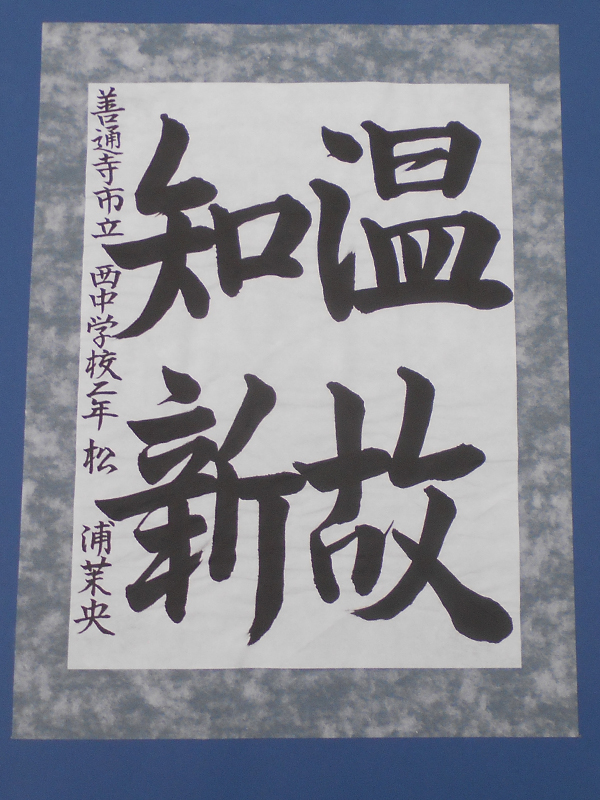 温故
知新
善通寺市立 西中学校二年 松浦茉央